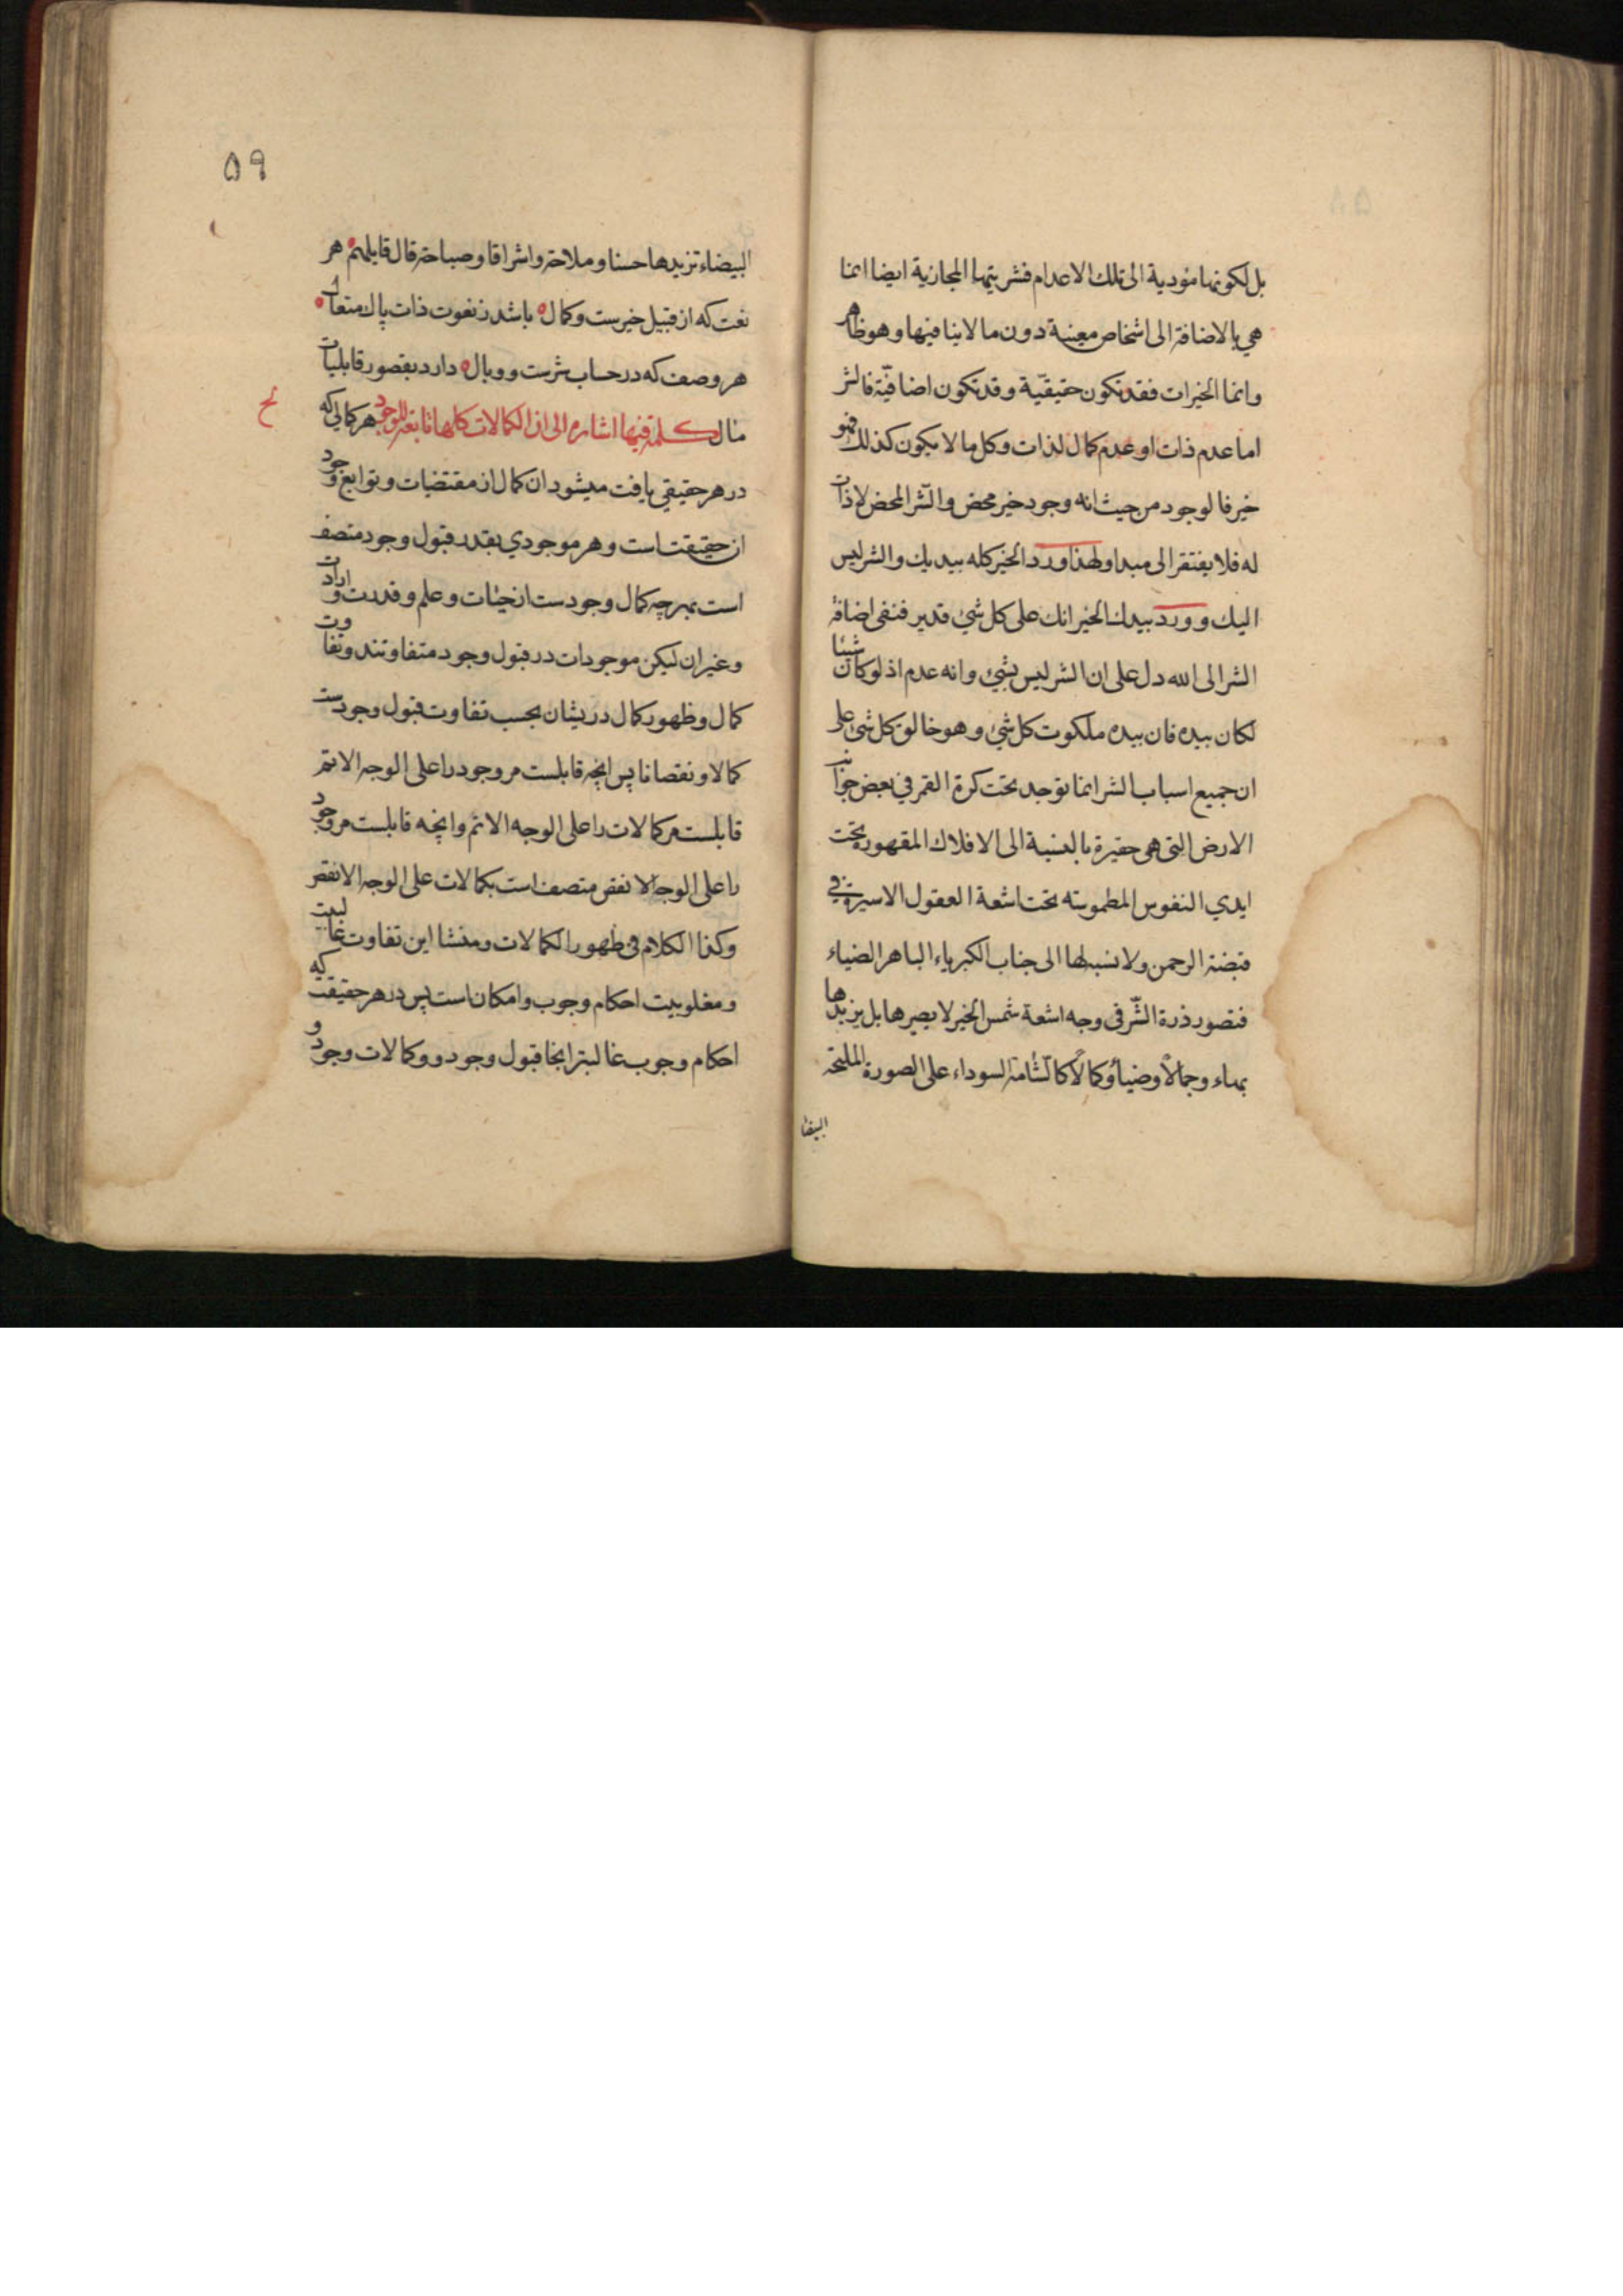 بل لكونها مؤدية الى تلك الاعدام فشريتها المجازية ايضا انما
هي بالاضافة الى اشخاص معينة دون ما لا ينافيها وهو ظاهر
وانما الخيرات فقد تكون حقيقيّة وقد تكون اضافيّة فالشر
اما عدم ذات او عدم كمال لذات وكل ما لا يكون كذلك فهو
خير فالوجود من حيث انه وجود خير محض والشّر المحض لا ذات
له فلا يفتقر الى مبدا ولهذا ورد الخير كله بيديك والشر ليس
اليك وورد بيدك الخير انك على كل شيء قدير فنفى اضافة
الشر الى الله دل على ان الشر ليس بشيء وانه عدم اذ لو كان شيئا
لكان بيده فان بيده ملكوت كل شيء وهو خالق كل شيء على
ان جميع اسباب الشر انما توجد تحت كرة القمر في بعض جوانب
الارض التي هي حقيرة بالنسبة الى الافلاك المقهورة تحت
ايدي النفوس المطموسة تحت اشعة العقول الاسيرة في
قبضة الرحمن ولا نسبة لها الى جناب الكبرياء الباهر الضياء
فتصور ذرة الشّر في وجه اشعة شمس الخير لا يضرها بل يزيدها
بهاء وجمالا وضياء وكمالا كالشّامة السوداء على الصورة المليحة
البيضا
٥٩
البيضاء تزيدها حسنا وملاحة واشراقا وصباحة قال قايلهم هر
نعت كه از قبيل خيرست وكمال باشد ز نعوت ذات پاك متعال
هر وصف كه در حساب شرست ووبال دارد بقصور قابليات
مال كلمة فيها اشارة الى ان الكمالات كلها تابعة للوجود هر كمالي كه
در هر حقيقي يافت ميشود ان كمال از مقتضيات وتوابع وجود
ان حقيقت است وهر موجودي بقدر قبول وجود متصف
است بهرچه كمال وجودست از حيات وعلم وقدرت وارادت
وغير ان ليكن موجودات در قبول وجود متفاوتند وتفاوت
كمال وظهور كمال دريشان بحسب تفاوت قبول وجودست
كمالا ونقصانا پس انچه قابلست مر وجود را على الوجه الاتم
قابلست مر كمالات را على الوجه الاتم وانچه قابلست مر وجود
را على الوجه الانقص متصف است بكمالات على الوجه الانقص
وكذا الكلام في ظهور الكمالات ومنشا اين تفاوت غالبيت
ومغلوبيت احكام وجوب وامكان است پس در هر حقيقت كه
احكام وجوب غالبتر انجا قبول وجود وكمالات وجود و